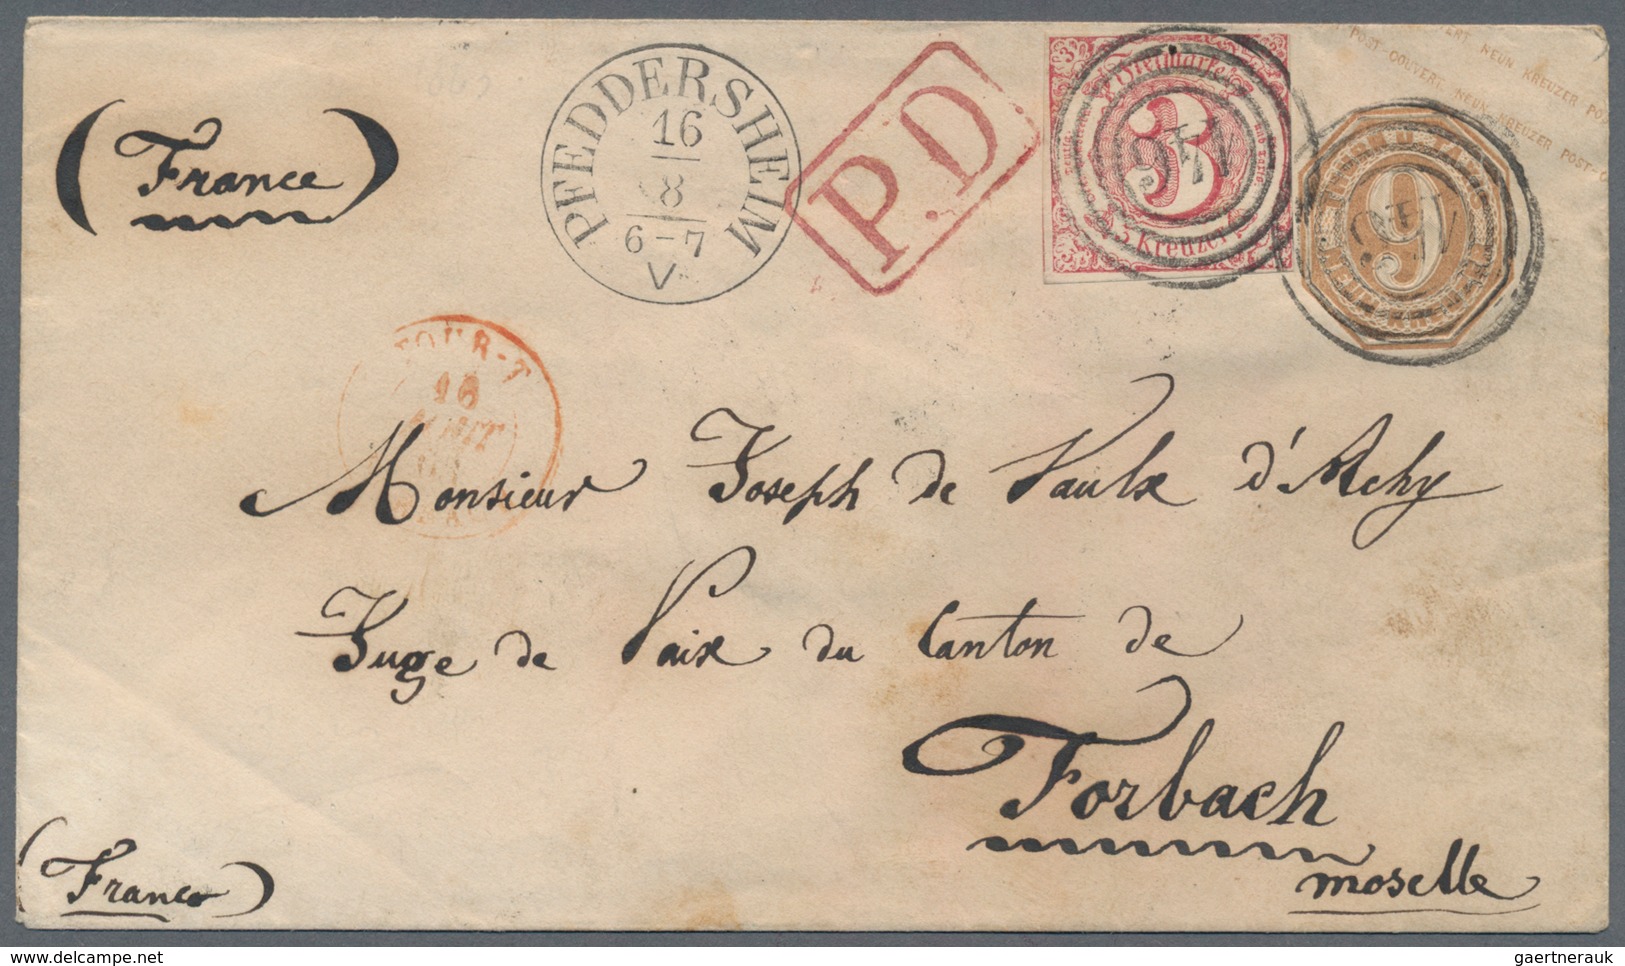 (France)
PFEDDERSHEIM
16
8
6-7
V
P.D
Freimarke
3
3 Kreuzer
POST-COUVERT NEUN KREUZER
POST-COUVERT NEUN KREUZER POST-
9
TOUR-T
16
Monsieur Joseph de Vaulx d'Achy
Juge de Paix du Canton de
Forbach
moselle
(Franco)
gaertnerauk